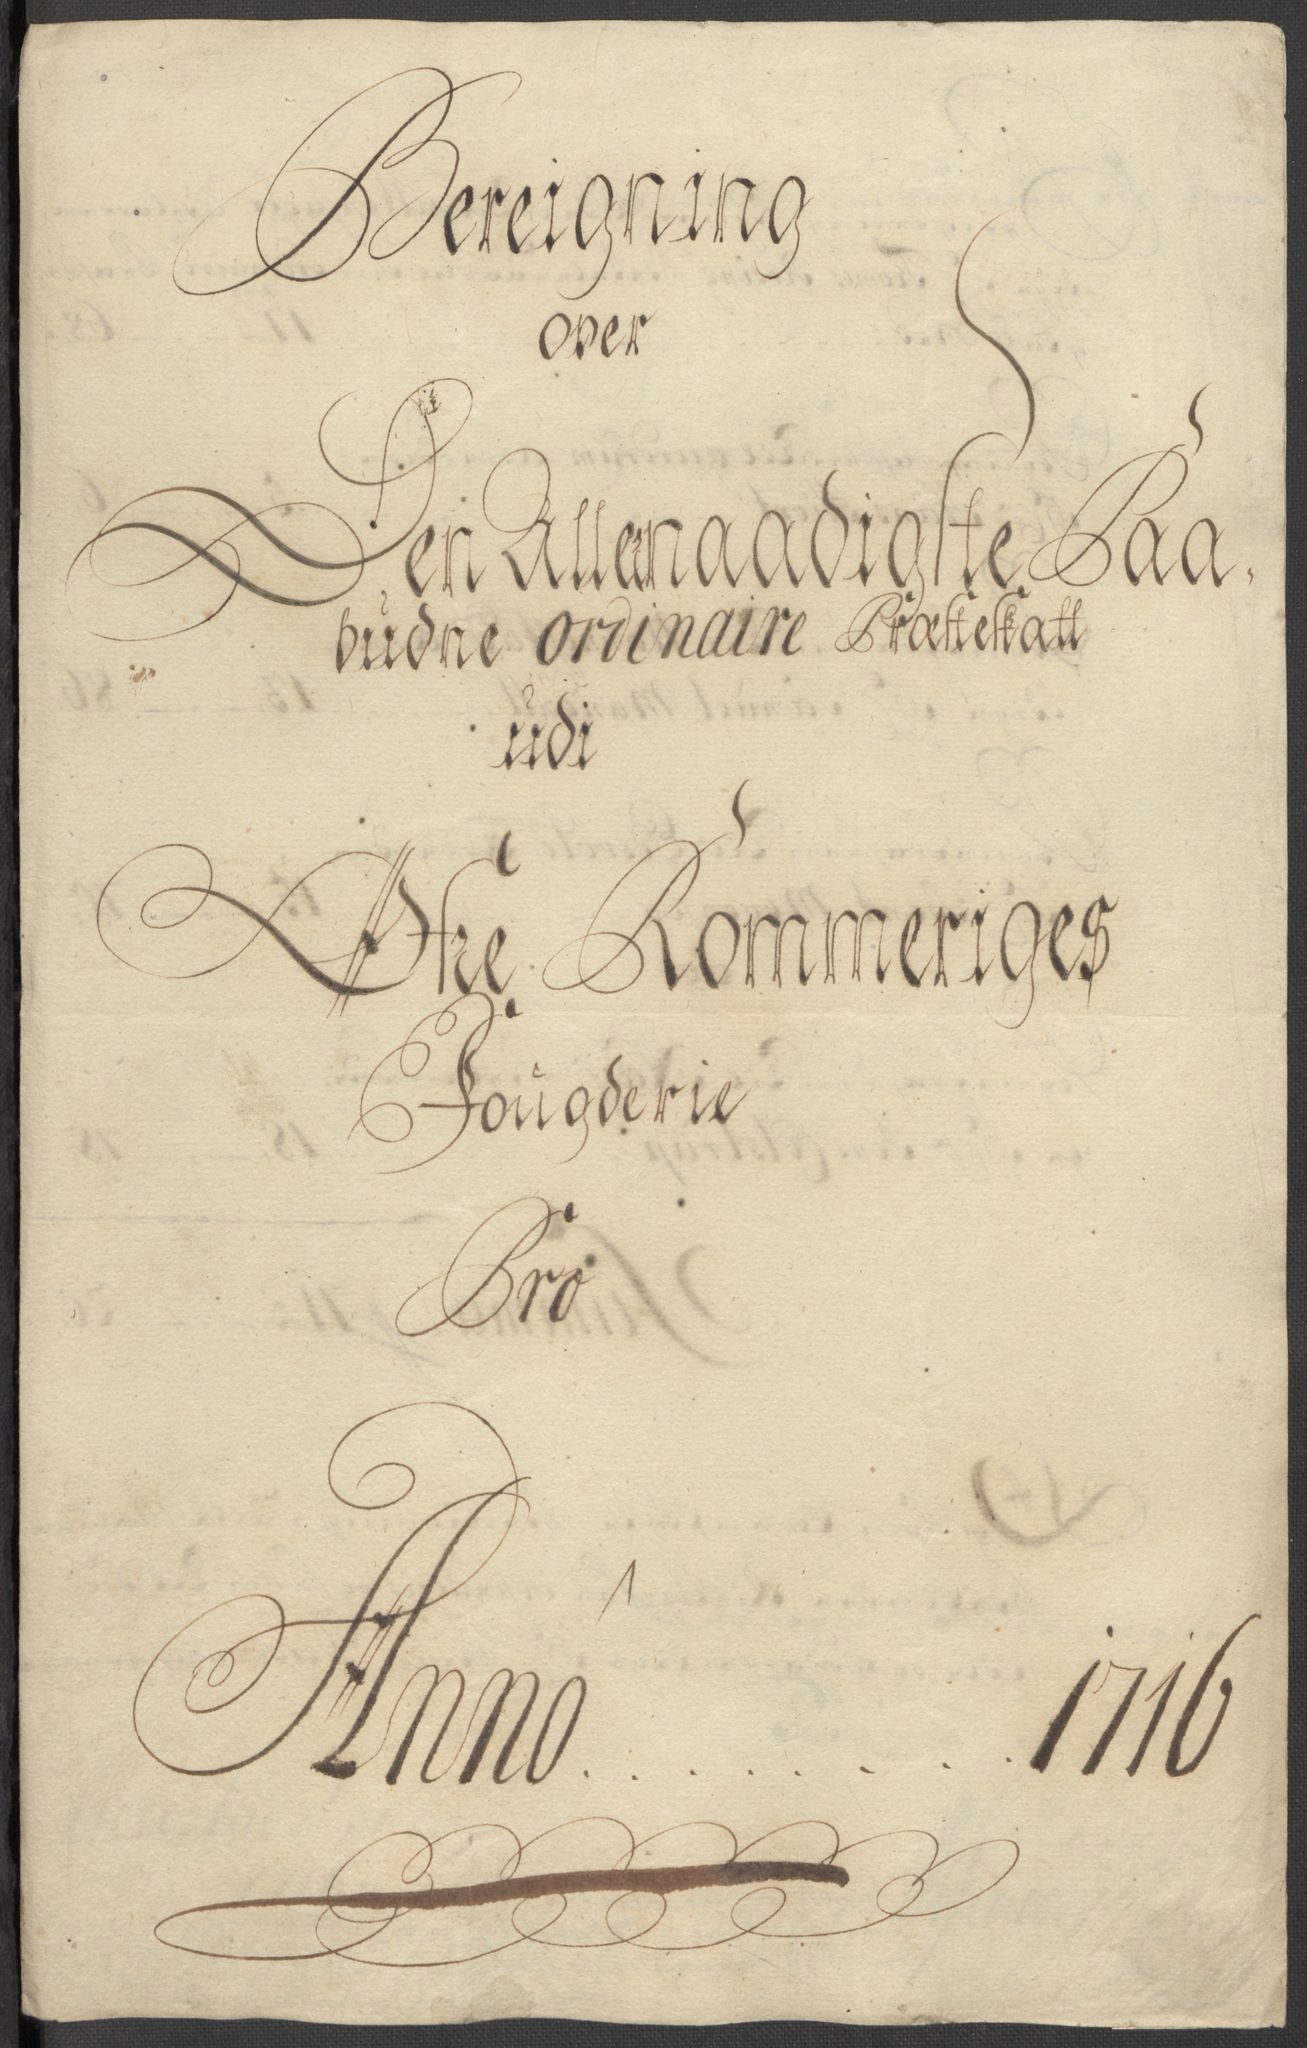 Bereigning
over
Den Allernaadigste Paa-
budne ordinaire Præsteskatt
udi
Øfre Rommeriges
Fougderie
Pro
Anno . . . . . . . . 1716